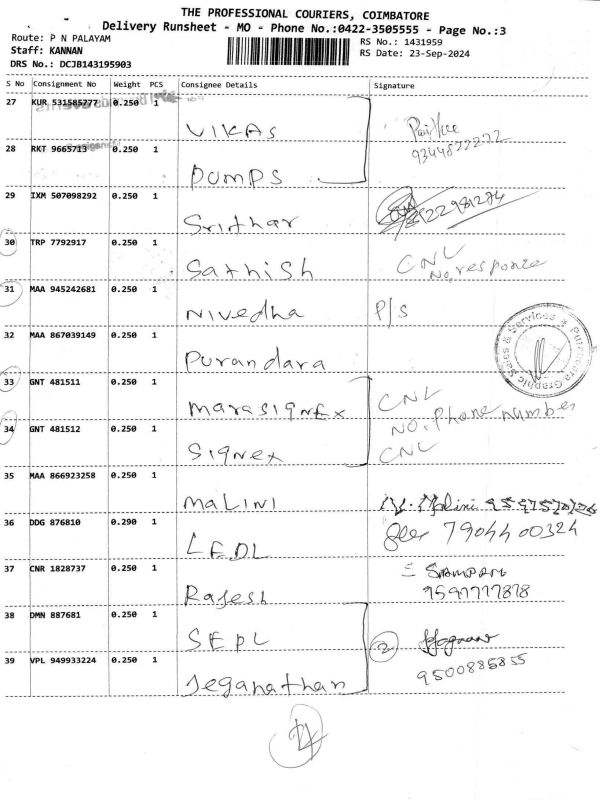 THE PROFESSIONAL COURIERS, COIMBATORE
Delivery Runsheet - MO - Phone No.:0422-3505555 - Page No.:3
Route: P N PALAYAM
RS No.: 1431959
Staff: KANNAN
RS Date: 23-Sep-2024
DRS No.: DCJB143195903
S No Consignment No Weight PCS Consignee Details Signature
27 KUR 531585777 0.250 1 VIKAS
28 RKT 9665713 0.250 1 PUMPS 9344872272
29 IXM 507098292 0.250 1 Sridhar
30 TRP 7792917 0.250 1 Sathish CNL No. response
31 MAA 945242681 0.250 1 Nivedha P/S
32 MAA 867039149 0.250 1 Purandara
33 GNT 481511 0.250 1 MARASIGNEX CNL
NO. Phone number
34 GNT 481512 0.250 1 SIGNEX CNL
35 MAA 866923258 0.250 1 MALINI
36 DDG 876810 0.290 1 LEDL 7904400324
37 CNR 1828737 0.250 1 Rajesh
9597777878
38 DMN 887681 0.250 1 SEPL 2
39 VPL 949933224 0.250 1 Jeganathan 9500885855
Purandara Graphic Sales & Services